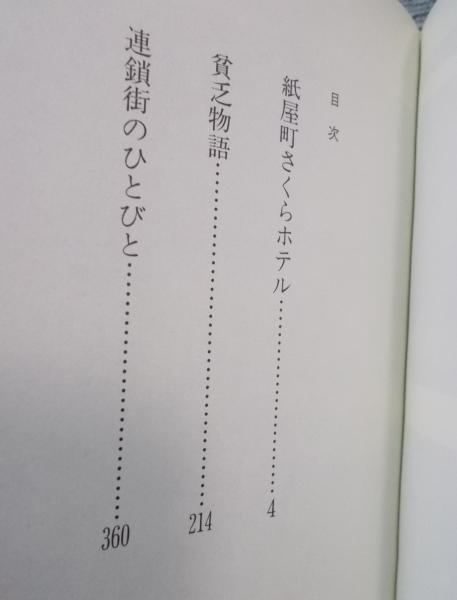 目次
紙屋町さくらホテル……………………4
貧乏物語……………………………………214
連鎖街のひとびと……………………………360